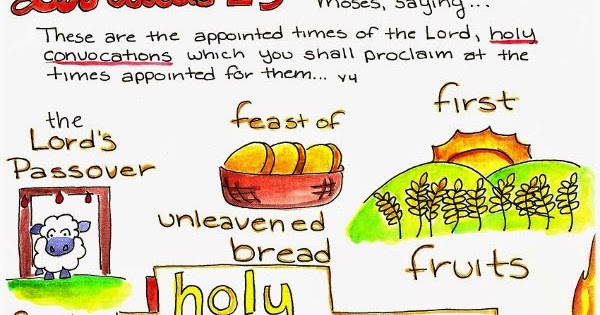 Moses, saying...
These are the appointed times of the Lord, holy
convocations which you shall proclaim at the
times appointed for them... v4
the
Lord's
Passover
feast of
unleavened
bread
first
fruits
holy